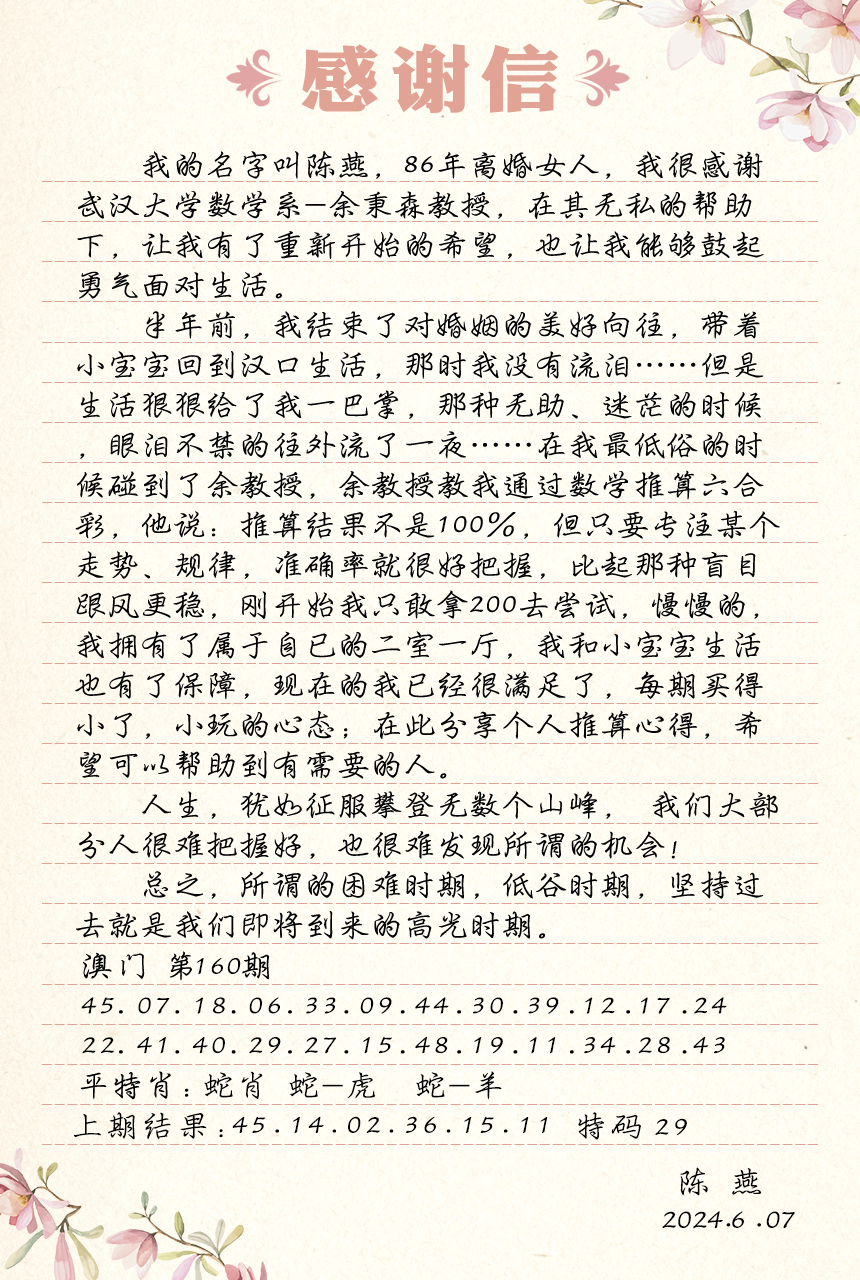 感谢信
我的名字叫陈燕，86年离婚女人，我很感谢
武汉大学数学系—余秉森教授，在其无私的帮助
下，让我有了重新开始的希望，也让我能够鼓起
勇气面对生活。
半年前，我结束了对婚姻的美好向往，带着
小宝宝回到汉口生活，那时我没有流泪……但是
生活狠狠给了我一巴掌，那种无助、迷茫的时候
，眼泪不禁的往外流了一夜……在我最低俗的时
候碰到了余教授，余教授教我通过数学推算六合
彩，他说：推算结果不是100%，但只要专注某个
走势、规律，准确率就很好把握，比起那种盲目
跟风更稳，刚开始我只敢拿200去尝试，慢慢的，
我拥有了属于自已的二室一厅，我和小宝宝生活
也有了保障，现在的我已经很满足了，每期买得
小了，小玩的心态；在此分享个人推算心得，希
望可以帮助到有需要的人。
人生，犹如征服攀登无数个山峰， 我们大部
分人很难把握好，也很难发现所谓的机会！
总之，所谓的困难时期，低谷时期，坚持过
去就是我们即将到来的高光时期。
澳门 第160期
45.07.18.06.33.09.44.30.39.12.17.24
22.41.40.29.27.15.48.19.11.34.28.43
平特肖：蛇肖 蛇—虎 蛇—羊
上期结果：45.14.02.36.15.11 特码 29
陈 燕
2024.6.07